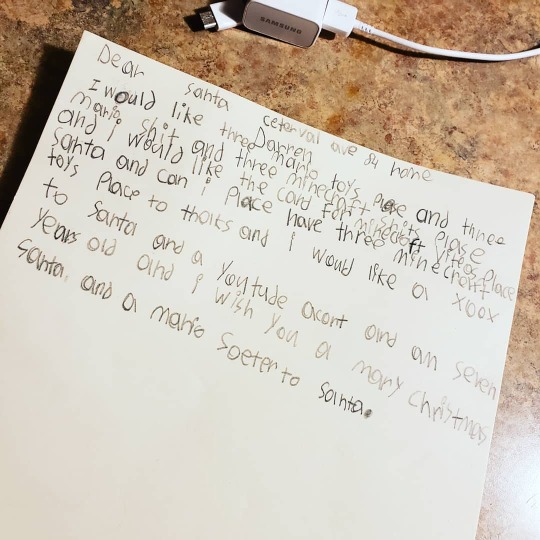 SAMSUNG
Dear santa ceterval ave 84 home
Darren
I would like three mario toys place and three
mario shit and three minecraft shits place
and i would like the card for mindcraft vites place
santa and can i place have three minecraft
toys place to thaks and i would like a xoox
to santa and a youtude acont and am seven
years old and i wish you a mary christmas
santa. and a mario soeter to santa.